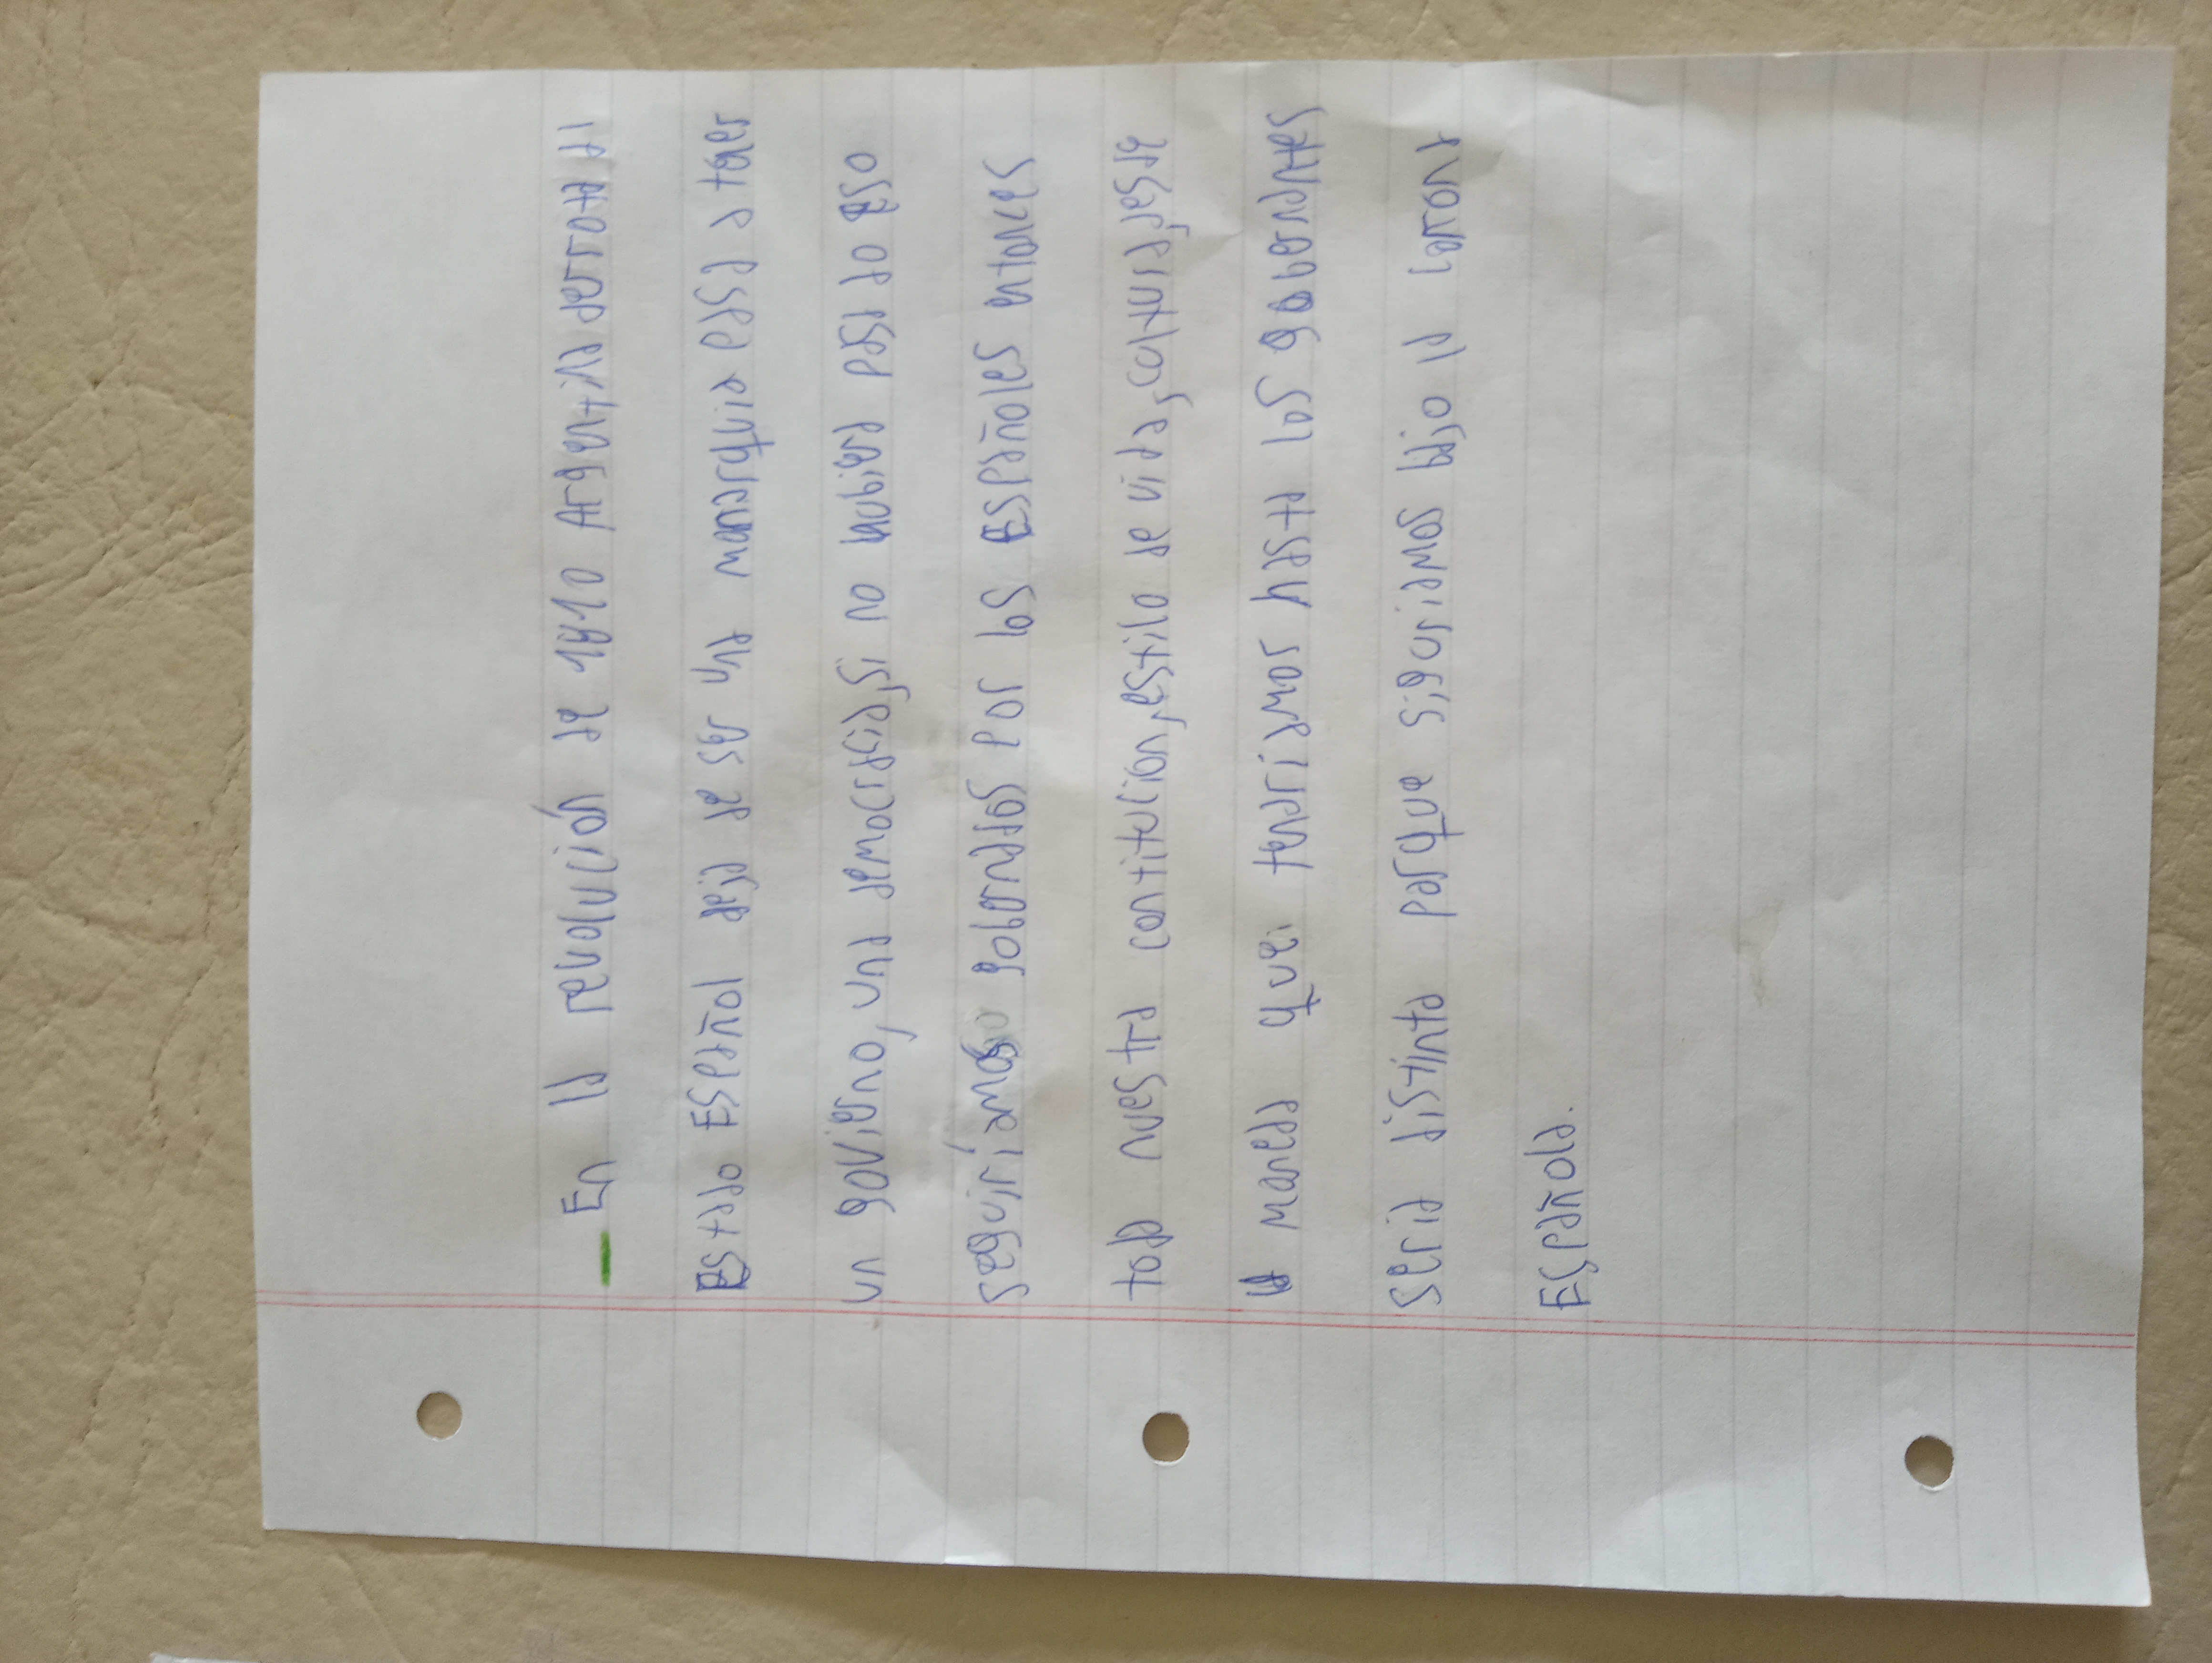 En la revolución de 1810 Argentina derrota al
estado Español deja de ser una monarquia e pasa a tener
un govigrno, una democracia, si no hubigra pasado eso
seguiríamos gobernados por los españoles entonces
toda nuestra contitucion, estilo de vida, cultura, desde
la manera que teniamos hasta los gobernantes
seria distinta porque seguiriamos bajo la corona
Española.